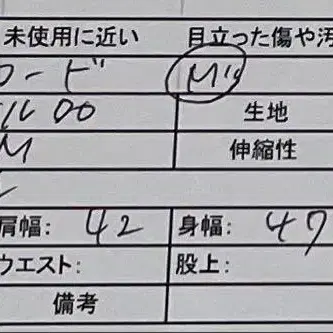 未使用に近い 目立った傷や汚
コード M's
1600 生地
M 伸縮性
肩幅: 42 身幅: 47
ウエスト: 股上:
備考